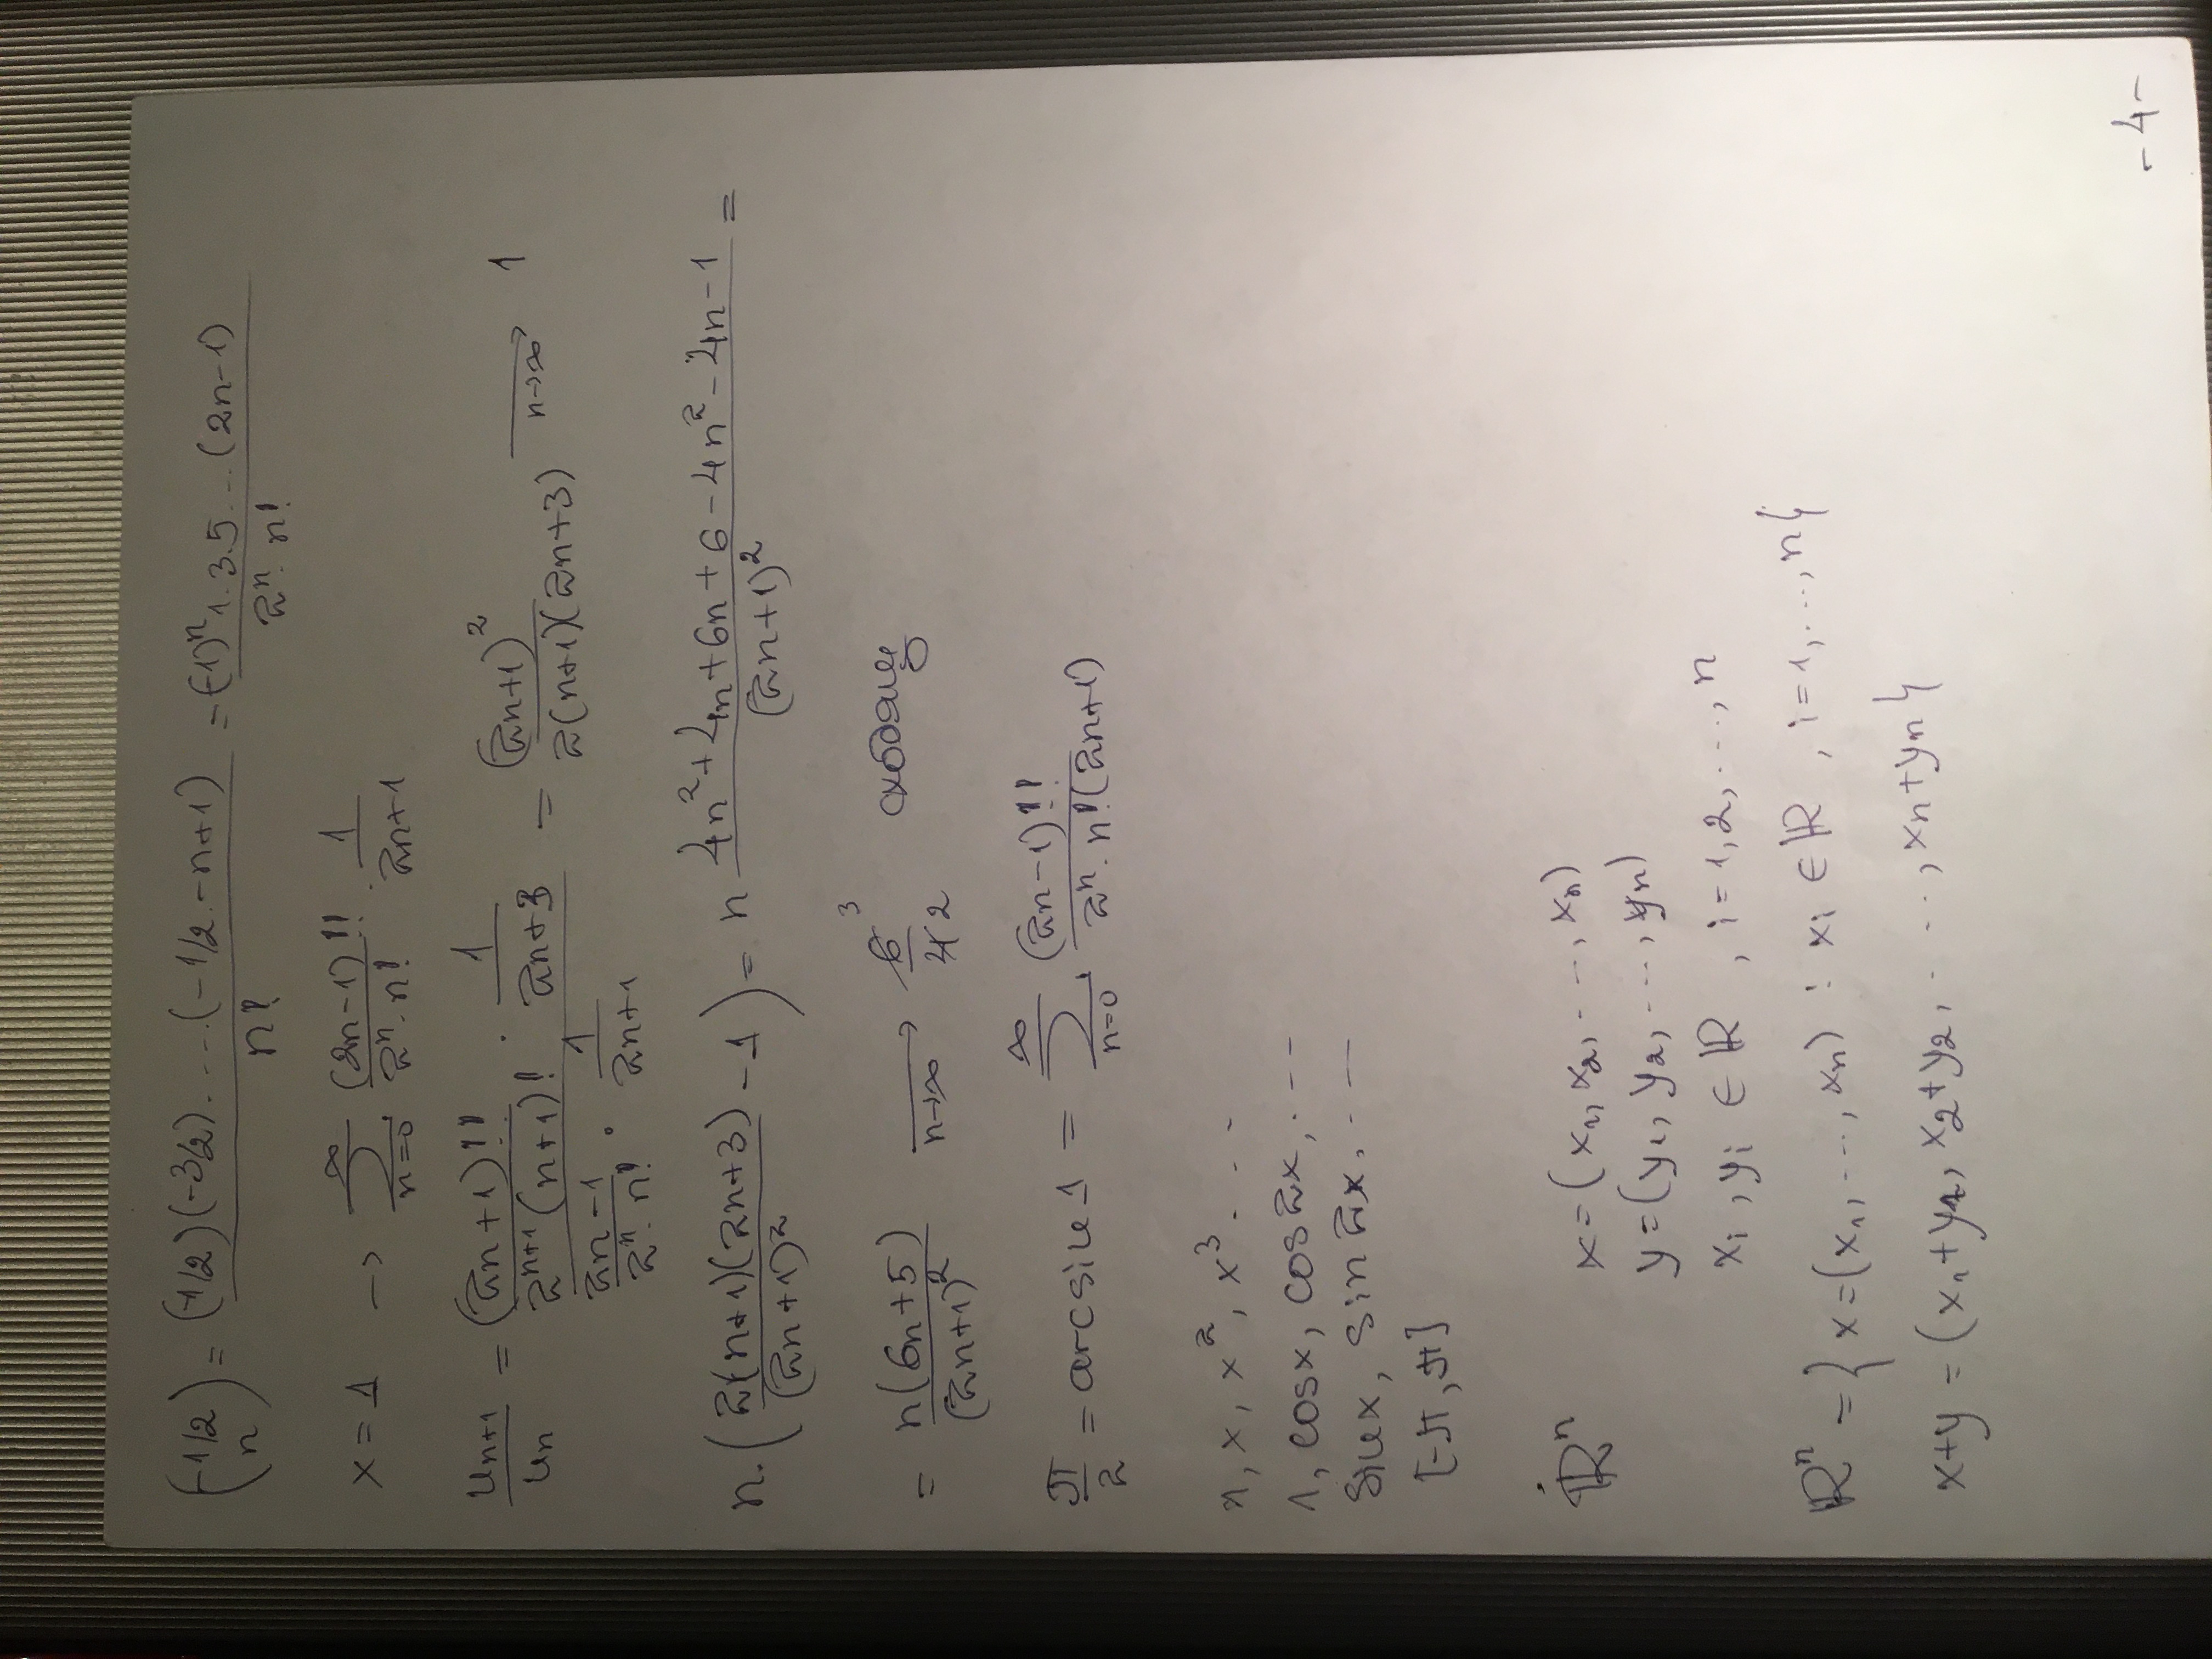 (-1/2 n) = (-1/2)(-3/2). ... (-1/2 - n+1) / n! = (-1)ⁿ 1.3.5. ... (2n-1) / 2ⁿ. n!
x = 1 → ∑ n=0 ∞ (2n-1)!! / 2ⁿ. n! · 1 / 2n+1
uₙ₊₁ / uₙ = (2n+1)!! / 2ⁿ⁺¹ (n+1)! · 1 / 2n+3 / 2n-1 / 2ⁿ. n! · 1 / 2n+1 = (2n+1)² / 2(n+1)(2n+3) → n→∞ 1
n. ( 2(n+1)(2n+3) / (2n+1)² - 1 ) = n 4n²+4n+6n+6-4n²-4n-1 / (2n+1)² =
= n(6n+5) / (2n+1)² → n→∞ 6 3 / 4 2 сходящ
π / 2 = arcsin 1 = ∑ n=0 ∞ (2n-1)!! / 2ⁿ. n!(2n+1)
1, x, x², x³ ...
1, cosx, cos2x, ...
sinx, sin2x, ...
[-π, π]
ℝⁿ x = (x₁, x₂, ..., xₙ)
y = (y₁, y₂, ..., yₙ)
xᵢ , yᵢ ∈ ℝ , i = 1, 2, ..., n
ℝⁿ = { x = (x₁, ..., xₙ) : xᵢ ∈ ℝ , i = 1, ..., n }
x+y = (x₁+y₁, x₂+y₂, ..., xₙ+yₙ }
- 4 -